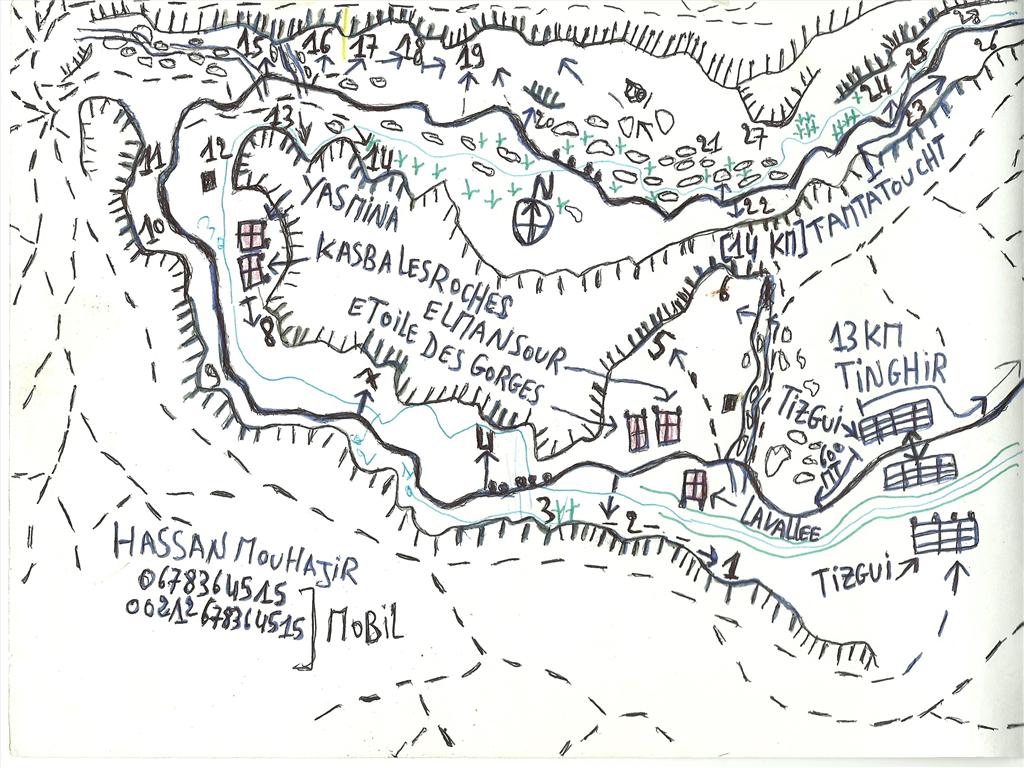 15 16 17 18 19
28
25
26
24
23
13
20
21 27
11 12 14
YASMINA
N
22
TAMTATOUCHT
[14 KM]
10
KASBA LES ROCHES
ELMANSOUR
ETOILE DES GORGES
6
5
8
13 KM
TINGHIR
TIZGUI
600
MT
4
3
2
1
LAVALLEE
TIZGUI
HASSAN MOUHAJIR
0678364515
00212678364515
MOBIL